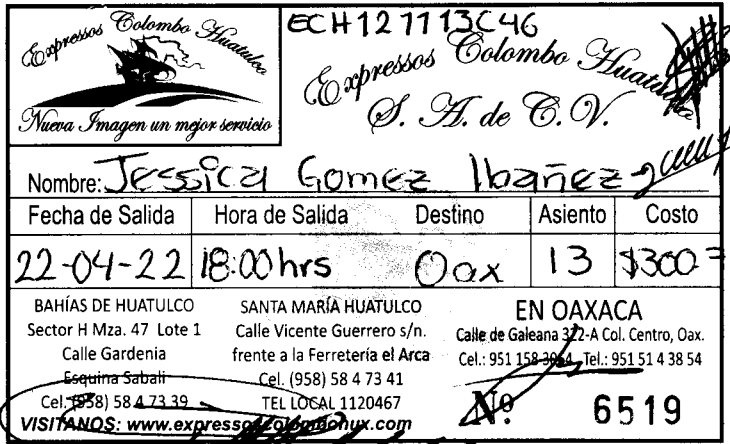 ECH121113C46
Expressos Colombo Huatulco
Nueva Imagen un mejor servicio
Expressos Colombo Huatulco
S. A. de C. V.
Nombre: Jessica Gomez Ibañez
Fecha de Salida Hora de Salida Destino Asiento Costo
22-04-22 18:00 hrs Oax 13 $300=
BAHÍAS DE HUATULCO
Sector H Mza. 47 Lote 1
Calle Gardenia
Esquina Sabali
Cel. (958) 58 4 73 39
SANTA MARÍA HUATULCO
Calle Vicente Guerrero s/n.
frente a la Ferretería el Arca
Cel. (958) 58 4 73 41
TEL LOCAL 1120467
EN OAXACA
Calle de Galeana 322-A Col. Centro, Oax.
Cel.: 951 158 Tel.: 951 51 4 38 54
VISITANOS: www.expressoscolombohux.com
Nº 6519